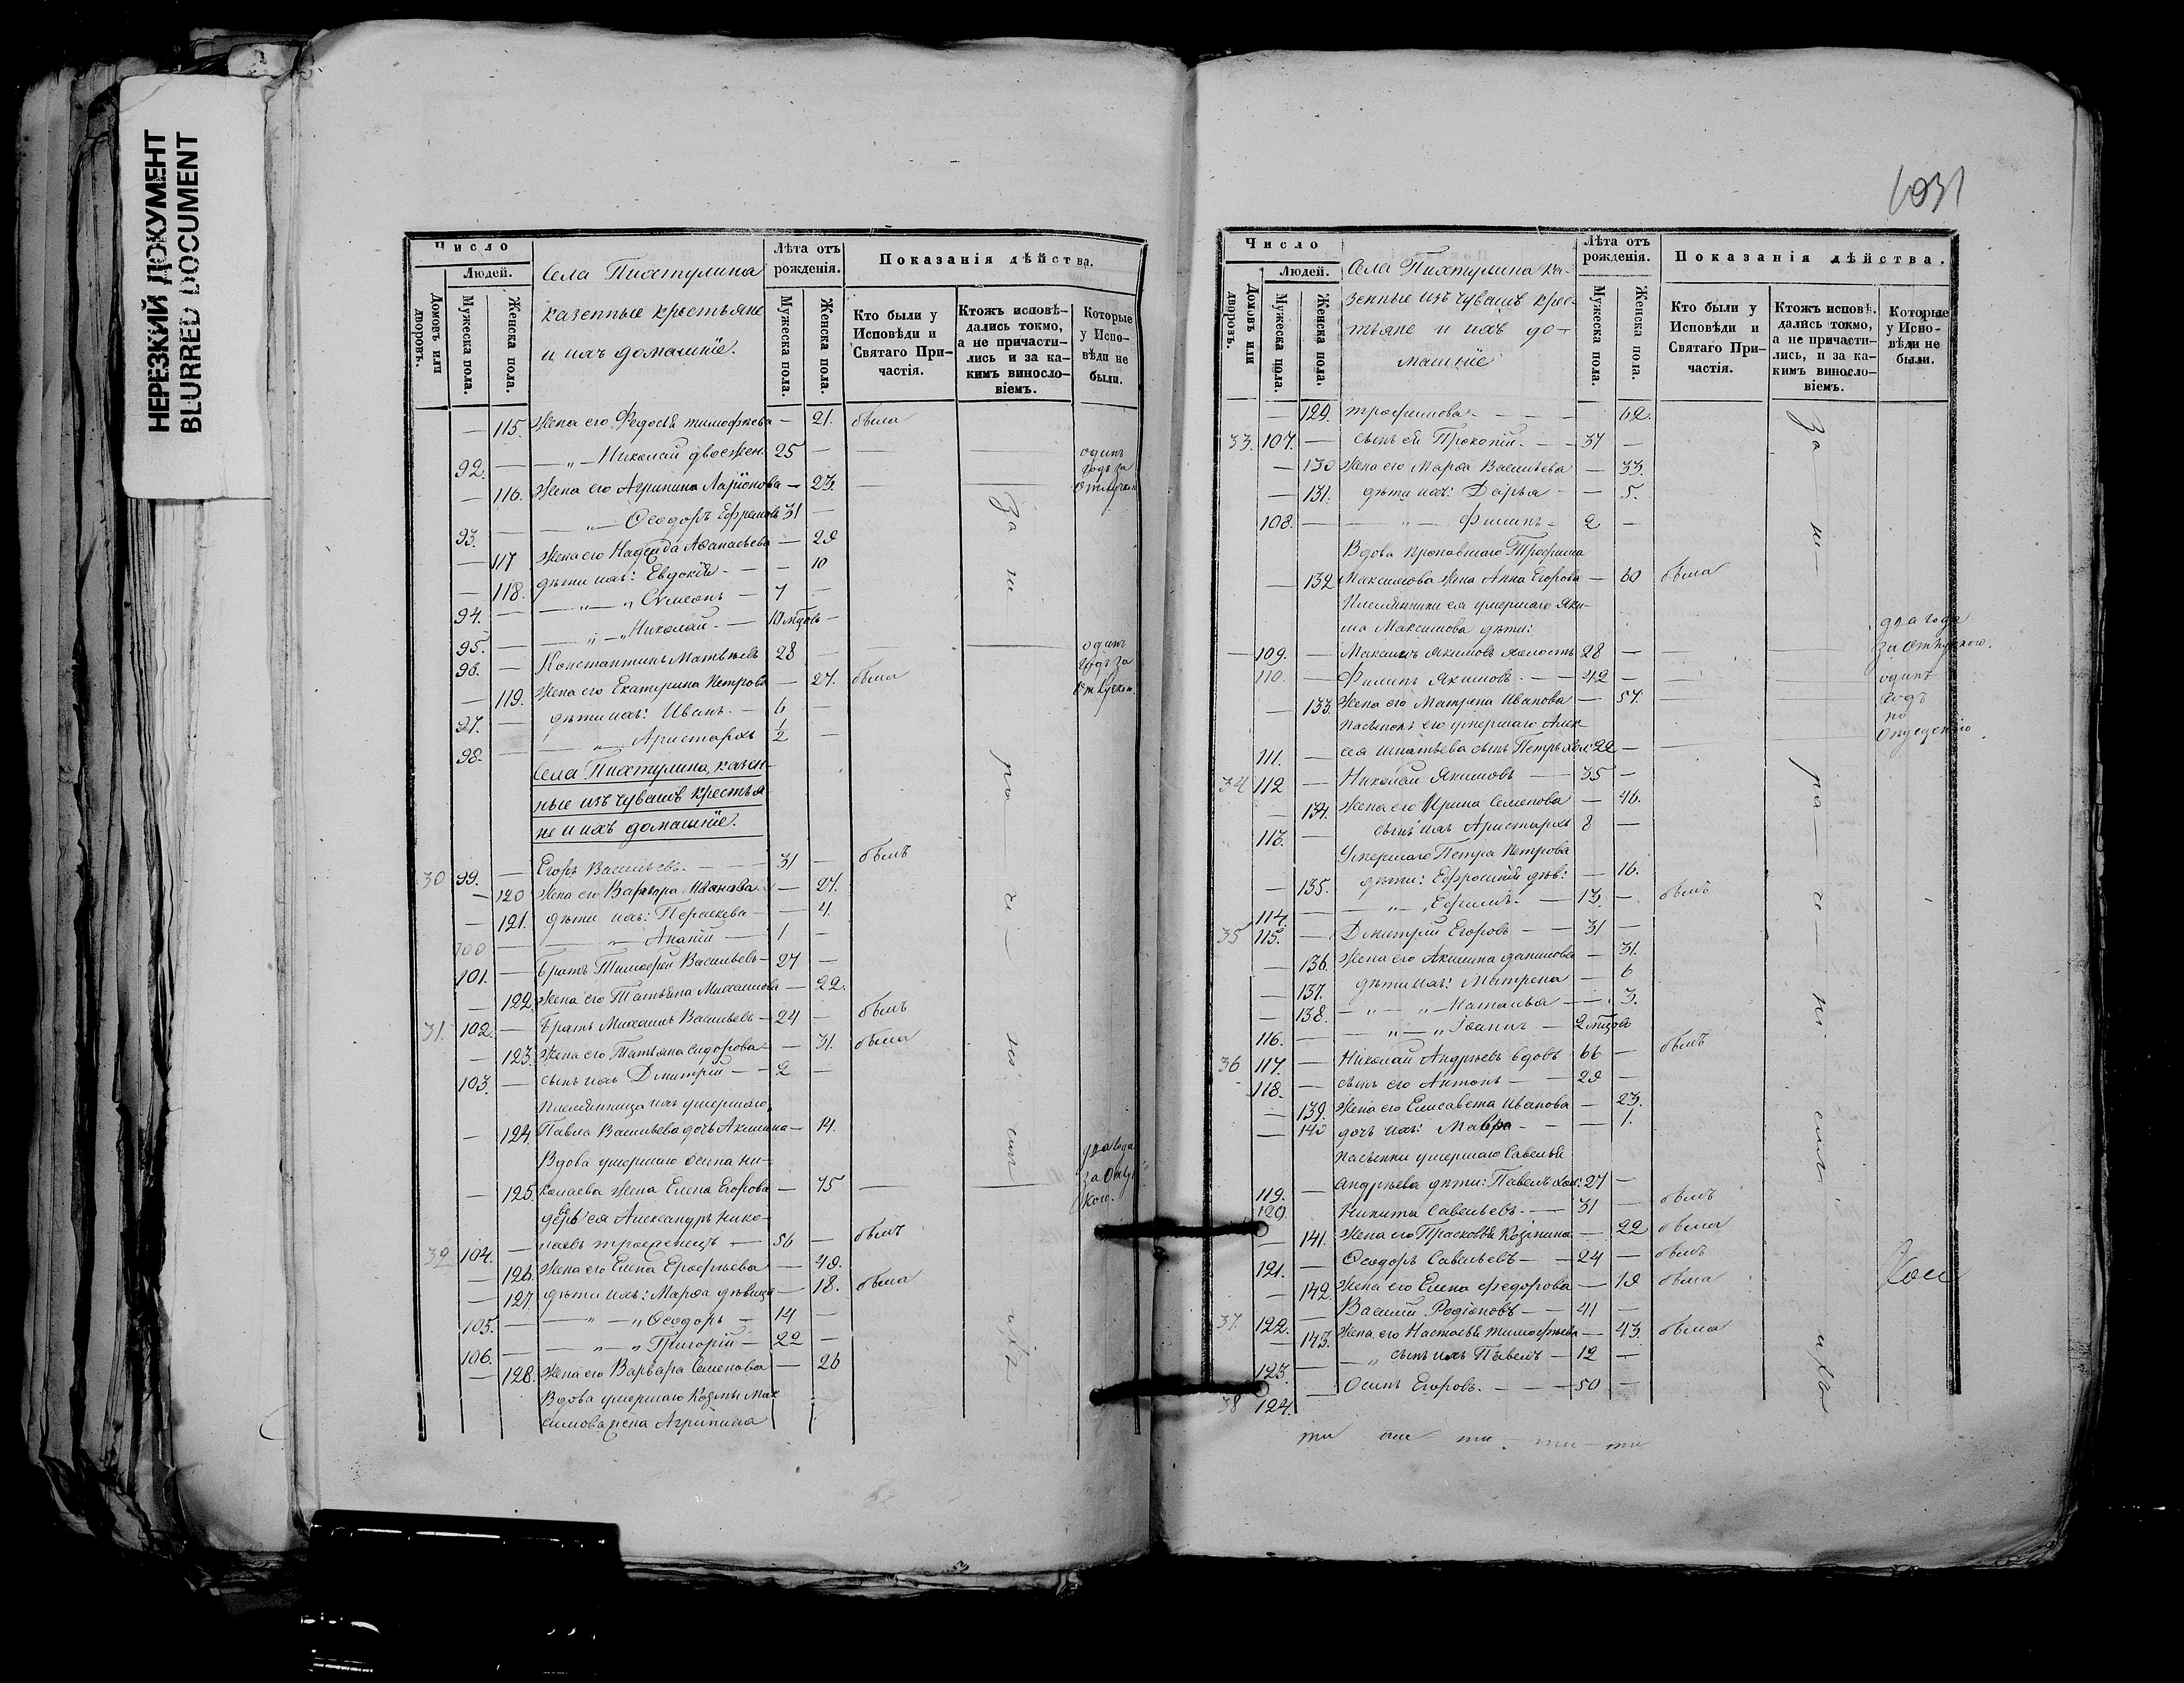 НЕРЕЗКИЙ ДОКУМЕНТ
BLURRED DOCUMENT
Число
Людей.
Домовъ или дворовъ.
Мужеска пола.
Женска пола.
Села Пихтулина
казенные крестьяне
и ихъ домашніе.
Лѣта отъ рожденія.
Мужеска пола.
Женска пола.
Показанія дѣйства.
Кто были у Исповѣди и Святаго Причастія.
Ктожъ исповѣдались токмо, а не причастились и за какимъ винословіемъ.
Которые у Исповѣди не были.
— 115. Жена его Федосья тимофеева — 21. была
92. — „ — Николай двоежен. 25 — одинъ
годъ за
— 116. Жена его Агрипина Ларіонова — 23. отлучкою
93. — „ — Ѳеодоръ Ефремовъ 31 —
— 117 Жена его Надежда Аѳанасьева — 29
— 118. дѣти ихъ: Евдокія — — 10
94. — „ — „ Сѵмеонъ — 7 —
95. — „ — „ Николай. — 10 мѣсц. —
96. — Константинъ Матвѣевъ 28 — одинъ
годъ за
— 119. Жена его Екатерина Петрова — 27. была отлучкою.
97. — дѣти ихъ: Иванъ. — 6
98. — „ Аристархъ 1/2 —
Села Пихтулина, казен-
ные изъ чувашъ крестья-
не и ихъ домашніе.
30 99. — Егоръ Васильевъ. — 31 — былъ
— 120 Жена его Варвара Иванова. — 27.
— 121. дѣти ихъ: Пераскева — — 4.
100 — „ Ананій — 1 —
101. — Братъ Тимофей Васильевъ — 27 —
— 122. Жена его Татьяна Михаилова — 22.
31. 102. — Братъ Михаилъ Васильевъ — 24 — былъ
— 123. Жена его Татьяна Сидорова — — 31. была
103. — сынъ ихъ Дмитрій — 2 —
Племянница ихъ умершаго
— 124. Павла Васильева дочь Акилина — 14.
Вдова умершаго Осипа Ни-
два года
за отлуч-
— 125. колаева жена Елена Егорова — 75 — кою.
деверь ея Александръ Нико-
32 104. — лаевъ троеженецъ — 56 — былъ
— 126. Жена его Елена Ерофеева — 49.
— 127. дѣти ихъ: Марѳа дѣвица — 18. была
105. — „ — „ Ѳеодоръ — 14 —
106. — „ — „ Григорій — 22 —
— 128. Жена его Варвара Семенова — 26
Вдова умершаго Козмы Мак
симова жена Агрипина
За ма— ло— лѣ—
1031
Число
Людей.
Домовъ или дворовъ.
Мужеска пола.
Женска пола.
Села Пихтулина ка-
зенные изъ чувашъ крес-
тьяне и ихъ до-
машніе
Лѣта отъ рожденія.
Мужеска пола.
Женска пола.
Показанія дѣйства.
Кто были у Исповѣди и Святаго Причастія.
Ктожъ исповѣдались токмо, а не причастились, и за какимъ винословіемъ.
Которые у Исповѣди не были.
— 129. трофимова. — — — 62.
33. 107. — сынъ ея Прокопій. — — 37 —
— 130 Жена его Марѳа Васильева — 33.
— 131. дѣти ихъ: Дарья — — 5.
108. — „ — Филипъ — 2 —
Вдова пропавшаго Трофима
— 132 Максимова жена Анна Егорова — 60 была
Племянники ея умершаго Яки-
ма Максимова дѣти:
два года
— 109. — Максимъ Якимовъ холостъ 28 — за отлучкою.
110. — Филипъ Якимовъ. — — 42 — одинъ
— 133. Жена его Матрена Иванова — 57. годъ
по
Пасынокъ его умершаго Алек-
опущенію.
111. — сея Игнатьева сынъ Петръ хол: 22 —
34 112 — Николай Якимовъ — 35 —
— 134. Жена его Ирина Семенова — 46.
113. — сынъ ихъ Аристархъ 8 —
Умершаго Петра Петрова
— 135. дѣти: Ефросинія дѣв: — 16.
114. — „ — „ Ефимъ. — 13. — былъ
35 115. — Дмитрій Егоровъ — — 31 —
— 136. Жена его Акилина данилова — 31.
— 137. дѣти ихъ: Матрена — 6
— 138. — „ — „ — Наталья — — 3.
116. — „ — „ Іоаннъ — 2 мѣсцов
36 117. — Николай Андреевъ вдовъ 66 — былъ
118. — сынъ его Антонъ — — 29 —
— 139. Жена его Елисавета Иванова — 23.
— 140 дочь ихъ: Мавра — — 1.
Пасынки умершаго Савелья
119. — андреева дѣти: Павелъ хол: 27 —
120. Никита Савельевъ. — 31 — былъ
— 141. Жена его Прасковья Козмина — 22 была
121. — Ѳеодоръ Савельевъ — 24 — былъ
— 142. Жена его Елена федорова — 19 была
37. 122. Василій Родіоновъ — — 41 —
— 143. Жена его Настасья тимофеева — 43. была
123. — „ сынъ ихъ Павелъ — 12 —
38 124. — Осипъ Егоровъ. — — — 50 —